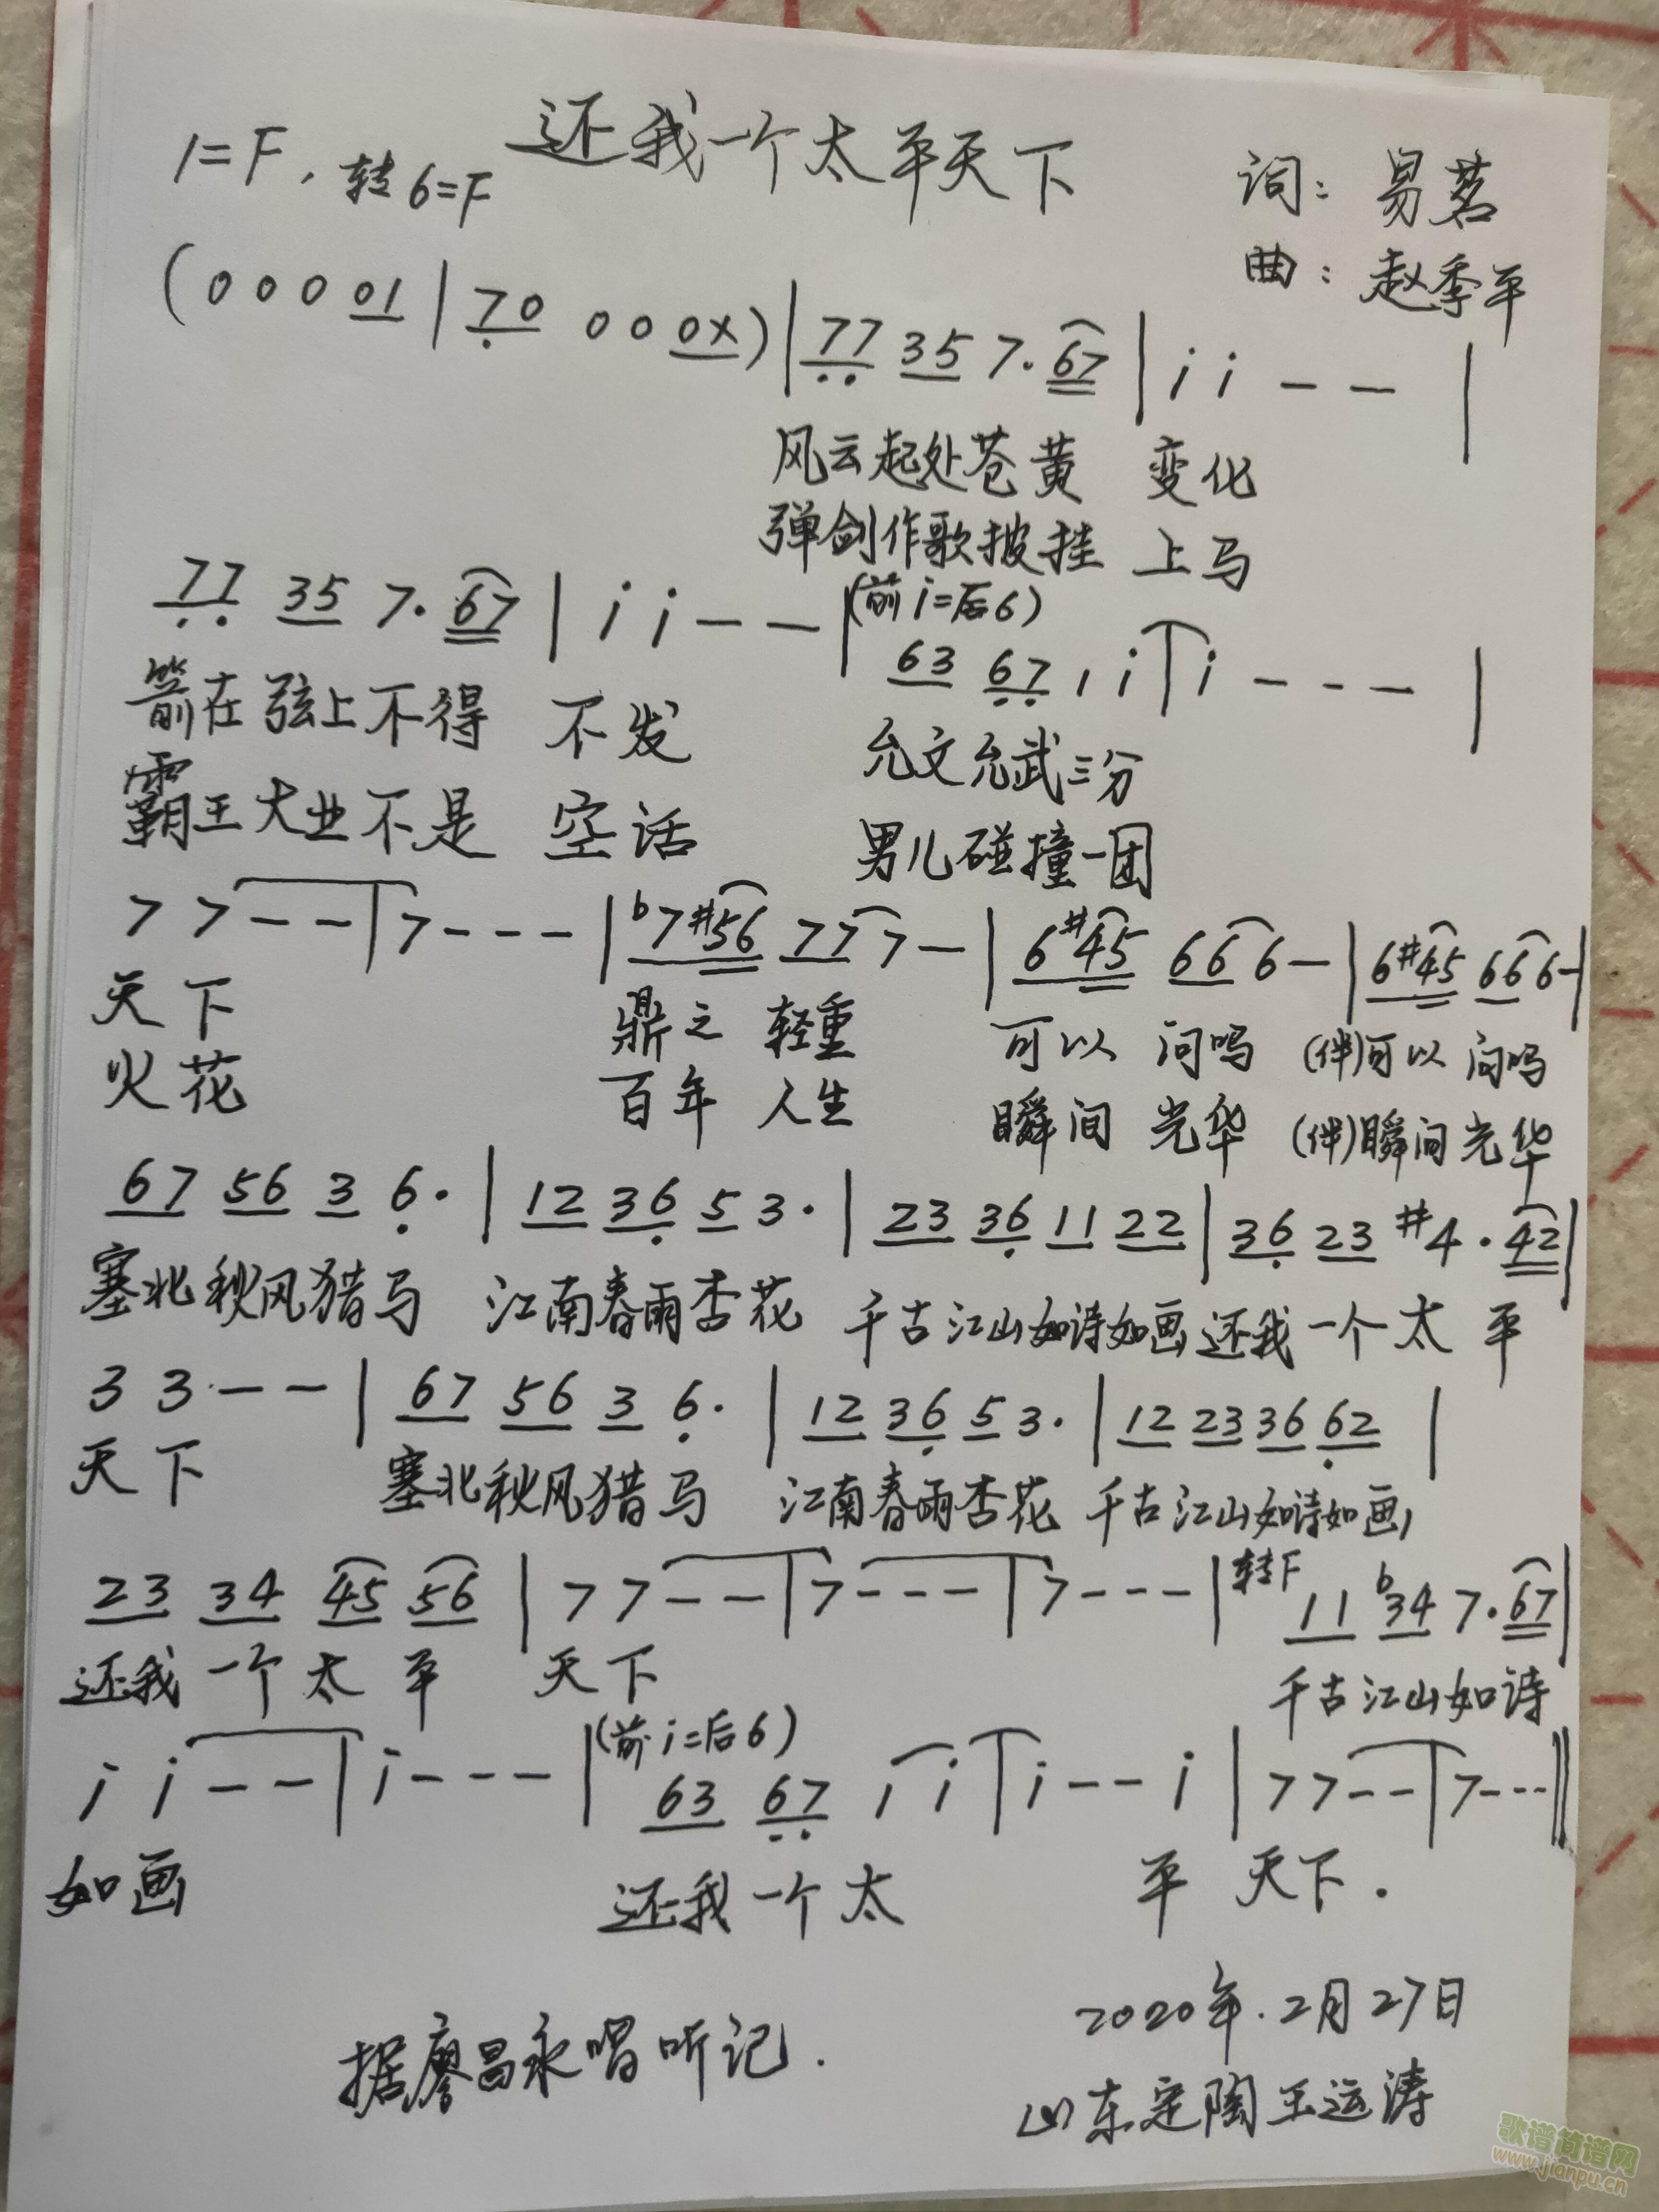 还我一个太平天下
1=F，转6=F
词：易茗
曲：赵季平
(0 0 0 01 | 70 0 0 0X) | 77 35 7·67 | i i — — |
风云起处苍黄 变化
弹剑作歌披挂 上马
77 35 7·67 | i i — — | (前i=后6) 63 67 1 i | i — — — |
箭在弦上不得 不发 允文允武三分
霸王大业不是 空话 男儿碰撞一团
7 7 — — | 7 — — — | b7#56 77 7 — | 6#45 66 6 — | 6#45 66 6 — |
天下 鼎之 轻重 可以 问吗 (伴)可以 问吗
火花 百年 人生 瞬间 光华 (伴)瞬间光华
67 56 3 6· | 12 36 5 3· | 23 36 11 22 | 36 23 #4·42 |
塞北秋风猎马 江南春雨杏花 千古江山如诗如画 还我一个太 平
3 3 — — | 67 56 3 6· | 12 36 5 3· | 12 23 36 62 |
天下 塞北秋风猎马 江南春雨杏花 千古江山如诗如画
23 34 45 56 | 7 7 — — | 7 — — — | 7 — — — | 转F 11 b34 7·67 |
还我 一个 太 平 天下 千古江山如诗
i i — — | i — — — | (前i=后6) 63 67 i i | i — — i | 7 7 — — | 7 — — — ‖
如画 还我一个太 平 天下.
2020年.2月27日
据廖昌永唱听记.
山东定陶王运涛
歌谱简谱网
www.jianpu.cn